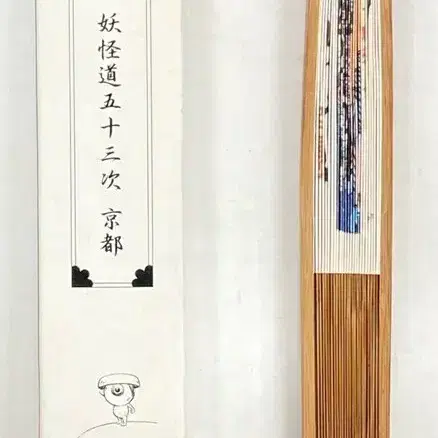 妖怪道五十三次 京都